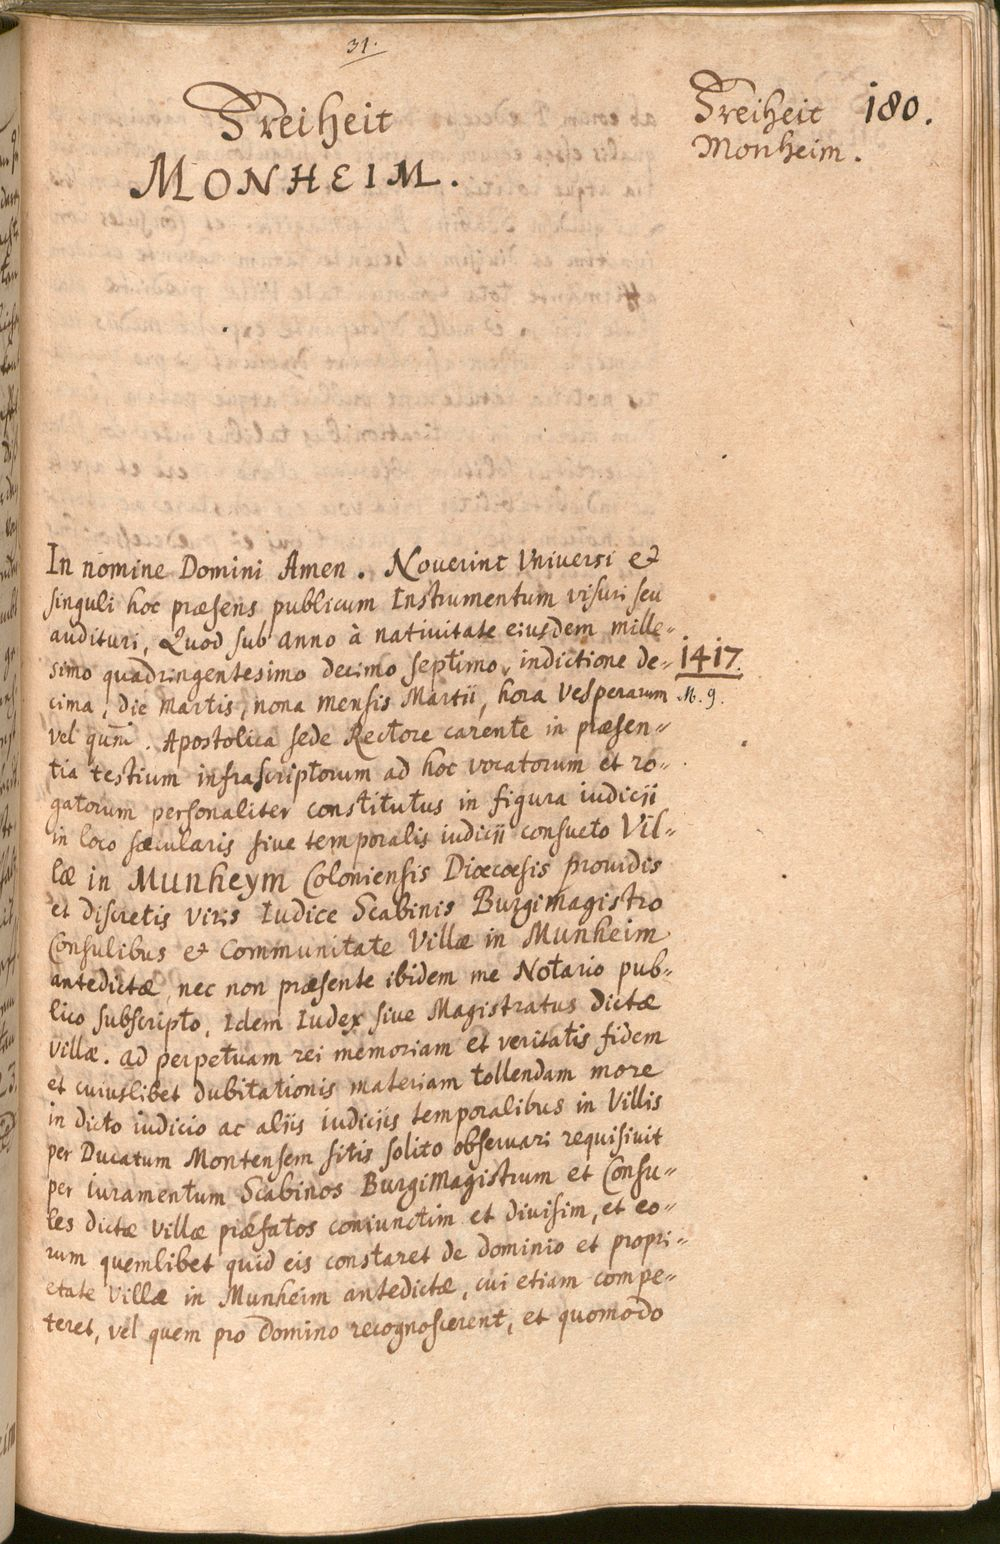 31.
Freiheit
MONHEIM.
Freiheit 180.
Monheim.
In nomine Domini Amen. Noverint Vniversi et
singuli hoc præsens publicum Instrumentum visuri seu
audituri, Quod sub anno à nativitate eiusdem mille-
simo quadringentesimo decimo septimo, indictione de-
1417.
cima, die Martis, nona mensis Martii, hora Vesperarum
M. 9.
vel qu̅asi. Apostolica sede Rectore carente in præsen-
tia testium infrascriptorum ad hoc vocatorum et ro-
gatorum personaliter constitutus in figura iudicii
in loco sæcularis sive temporalis iudicii consueto Vil-
læ in Munheym Coloniensis Diœcoesis providis
et discretis viris Iudice Scabinis Burgimagistro
Consulibus et Communitate Villæ in Munheim
antedictæ, nec non præsente ibidem me Notario pub-
lico subscripto, Idem Iudex sive Magistratus dictæ
villæ. ad perpetuam rei memoriam et veritatis fidem
et cuiuslibet dubitationis materiam tollendam more
in dicto iudicio ac aliis iudiciis temporalibus in Villis
per Ducatum Montensem sitis solito observari requisivit
per iuramentum Scabinos BurgiMagistrum et Consu-
les dictæ villæ præfatos coniunctim et divisim, et eo-
rum quemlibet quid eis constaret de dominio et propri-
etate villæ in Munheim antedictæ, cui etiam compe-
teret, vel quem pro Domino recognoscerent, et quomodo